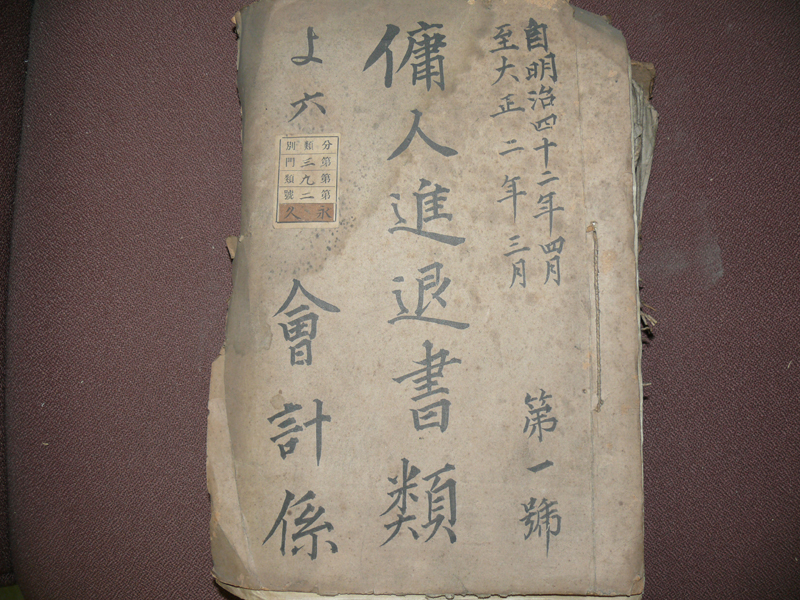 自明治四十二年四月
至大正二年三月
第一號
傭人進退書類
よ六
分類別
第三門
第九類
第二號
永久
會計係